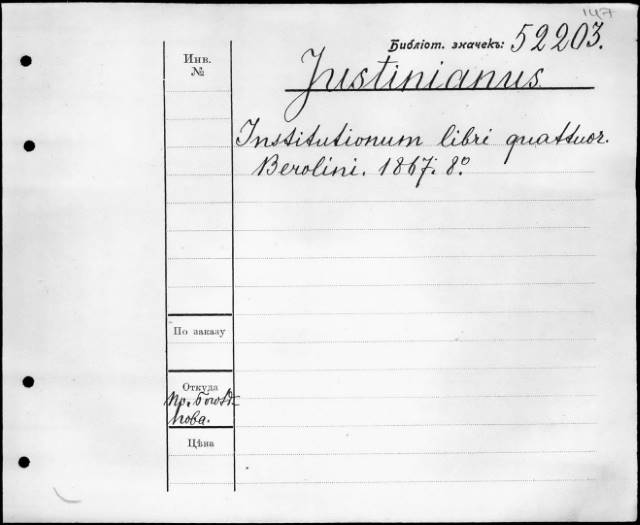 147
Библіот. значекъ: 52203.
Инв.
№
Justinianus
Institutionum libri quattuor.
Berolini. 1867. 8º
По заказу
Откуда
Цѣна